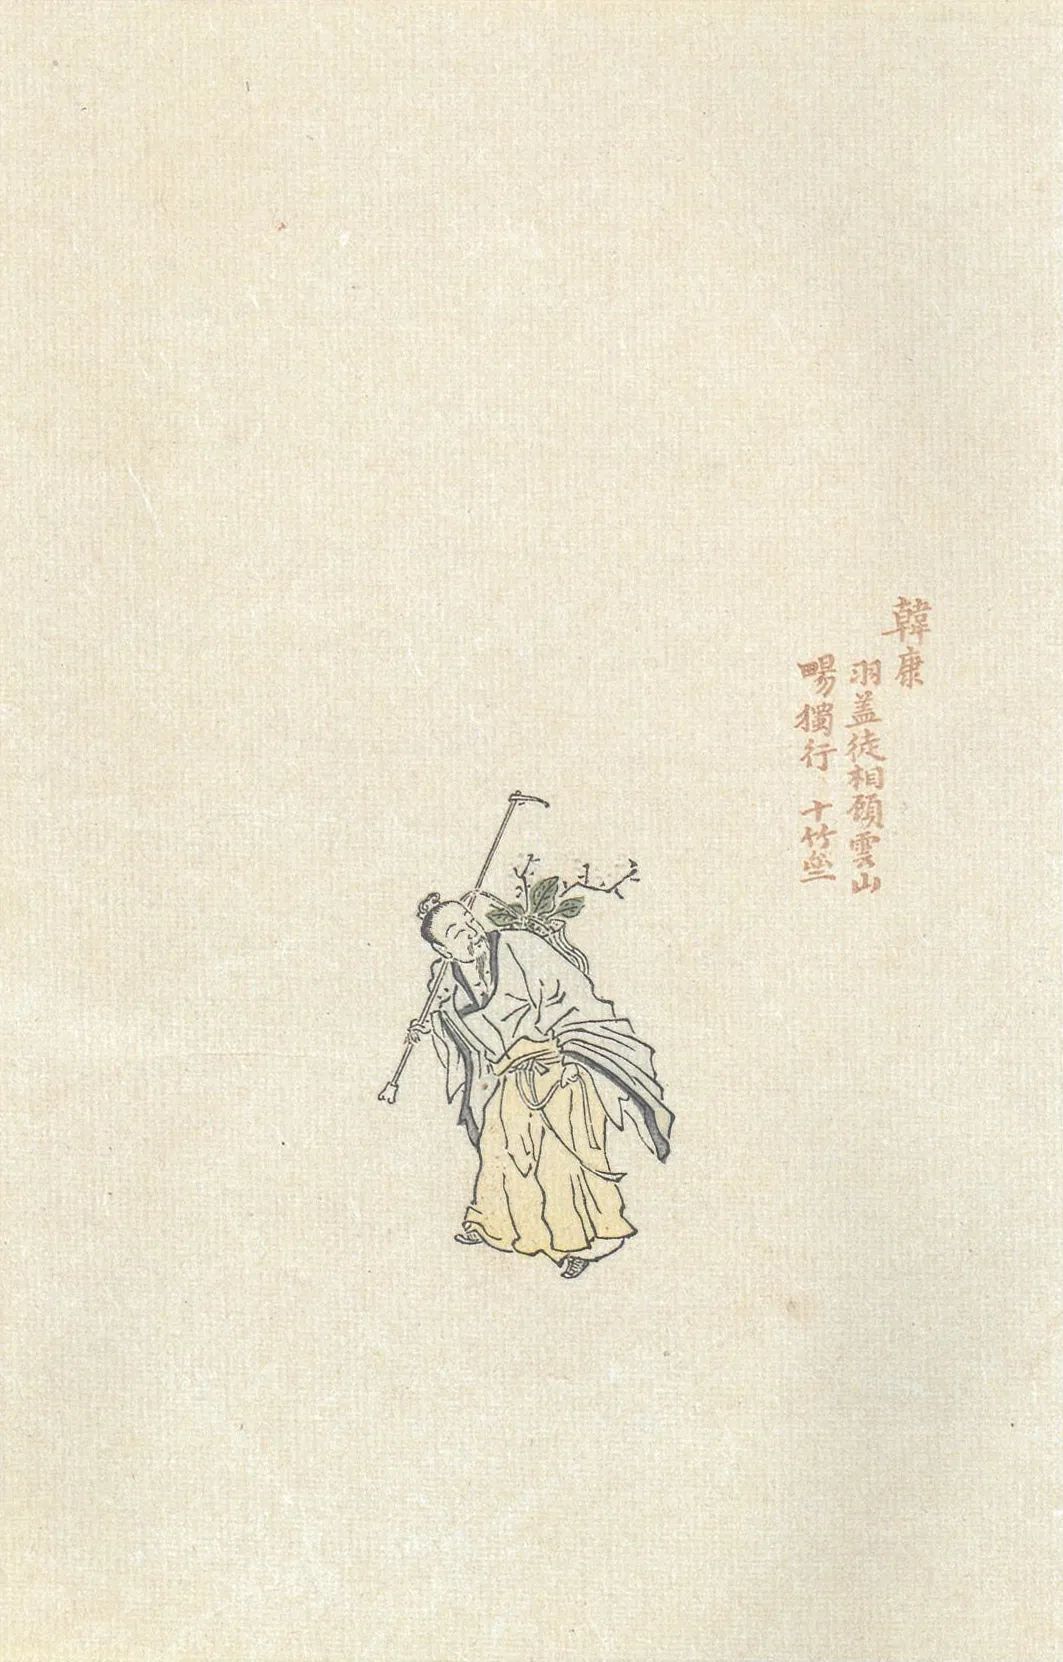 韓康
羽盖徒相顧雲山
暢獨行 十竹亝